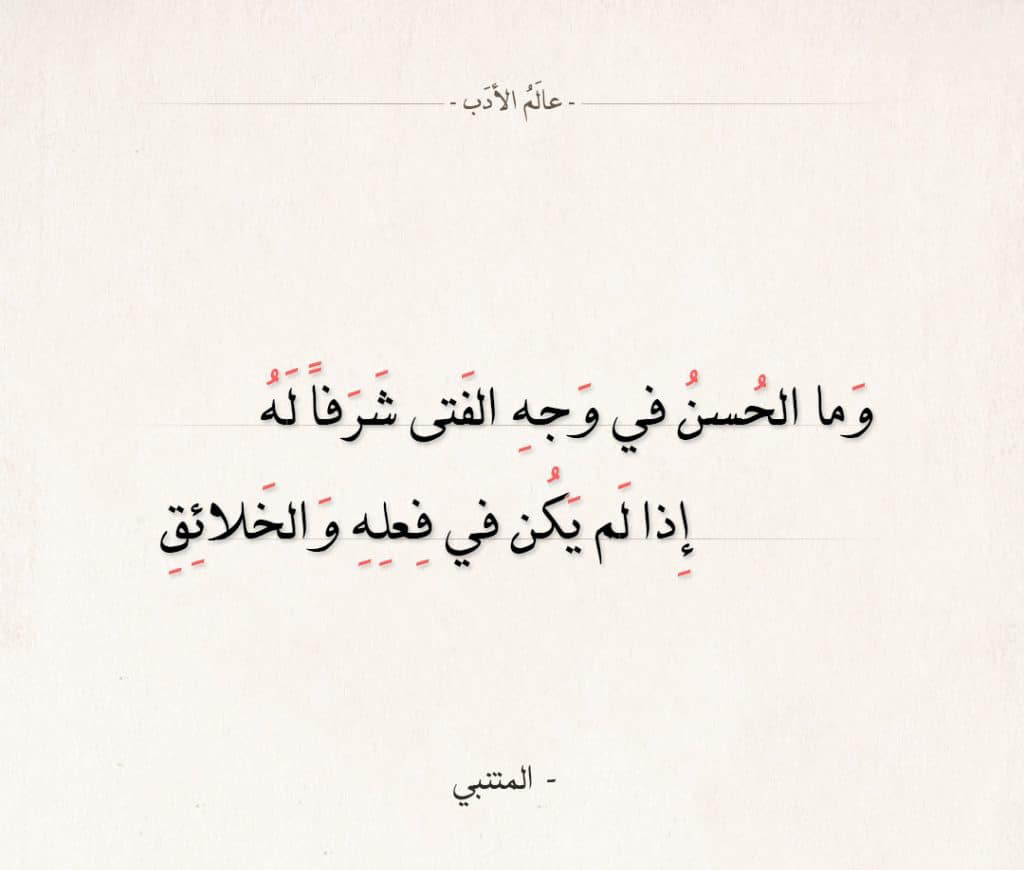 - عالَمُ الأدَب -
وَما الحُسنُ في وَجهِ الفَتى شَرَفاً لَهُ
إِذا لَم يَكُن في فِعلِهِ وَالخَلائِقِ
- المتنبي